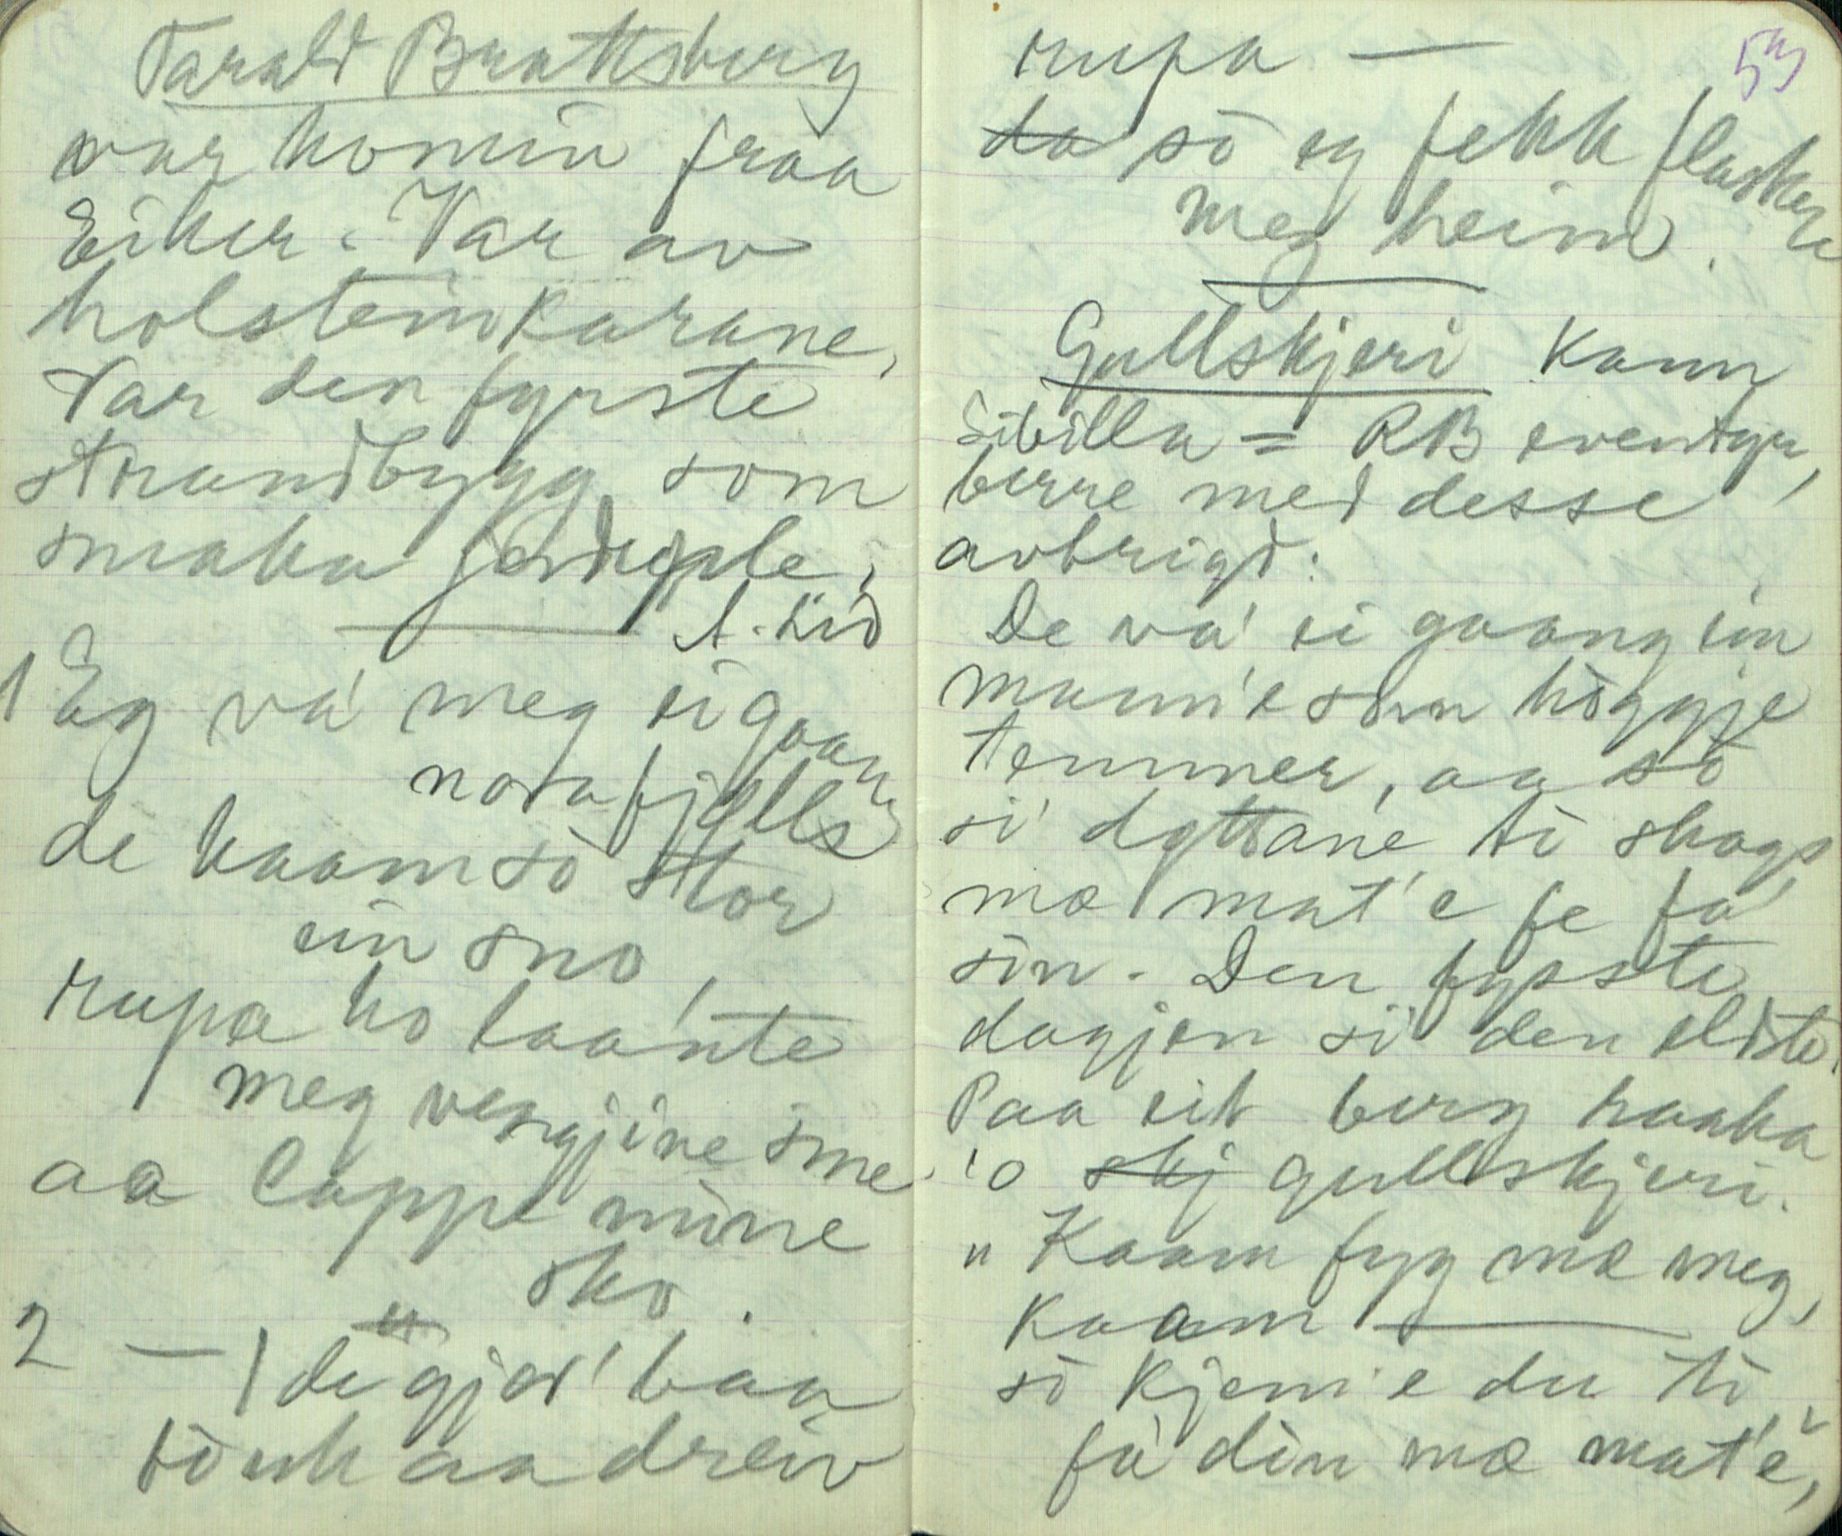 Tarald Brattsberg
var komin fraa
Eiker. Var av
holsteinkarane,
Var den fyrste
strandbygg som
smaka jordeple,
A. Lid
1 Eg vá meg ei gaang
norafjells
de kaam sò stor
ein sno,
rupa ho laánte
meg vengjine sine
aa lappe mine
sko.
2 — | de gjor' baa
tòuk aa dreiv
rupa —
53
da sò eg fekk flasken
meg heim.
Gullskjeri kann
Sibilla = RB eventyr,
berre med desse
avbrigd:
De va' ei gaang ein
mann'e som höggje
temmer, aa sò
si' dgttane ti skogs
mæ mat'e fe fa
sin. Den fysste
dagjen si' den eldste.
Paa eit berg haaka
'o skj gullskjeri.
" Kaam fyg mæ meg,
kaam —
sò kjem'e du ti
fa din mæ mat'e,"